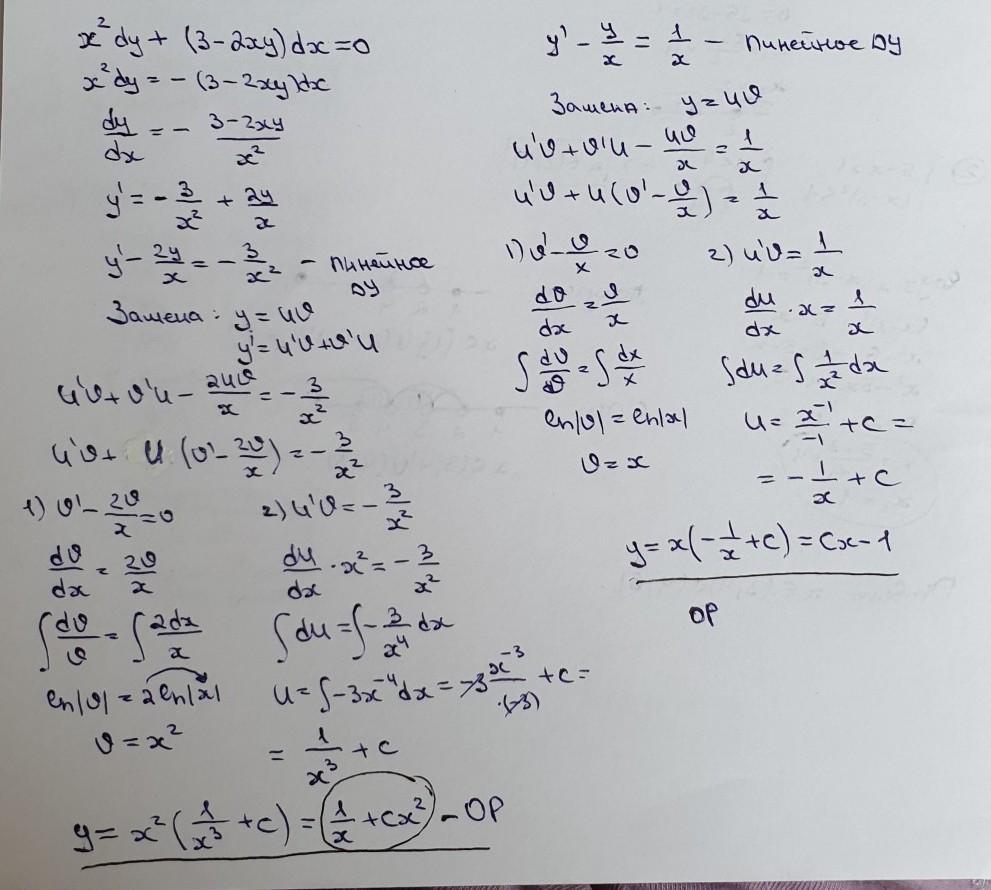 x² dy + (3 - 2xy) dx = 0
x² dy = - (3 - 2xy) dx
dy/dx = - (3 - 2xy)/x²
y' = - 3/x² + 2y/x
y' - 2y/x = - 3/x² - линейное
ДУ
Замена: y = uv
y' = u'v + v'u
u'v + v'u - 2uv/x = - 3/x²
u'v + u · (v' - 2v/x) = - 3/x²
1) v' - 2v/x = 0
dv/dx = 2v/x
∫ dv/v = ∫ 2dx/x
ln|v| = 2ln|x|
v = x²
2) u'v = - 3/x²
du/dx · x² = - 3/x²
∫ du = ∫ - 3/x⁴ dx
u = ∫ -3x⁻⁴ dx = -3 x⁻³/·(-3) + c =
= 1/x³ + c
y = x² (1/x³ + c) = 1/x + cx² - ОР
y' - y/x = 1/x - линейное ДУ
Замена: y = uv
u'v + v'u - uv/x = 1/x
u'v + u (v' - v/x) = 1/x
1) v' - v/x = 0
dv/dx = v/x
∫ dv/v = ∫ dx/x
ln|v| = ln|x|
v = x
2) u'v = 1/x
du/dx · x = 1/x
∫ du = ∫ 1/x² dx
u = x⁻¹/-1 + c =
= - 1/x + c
y = x(- 1/x + c) = cx - 1
ОР